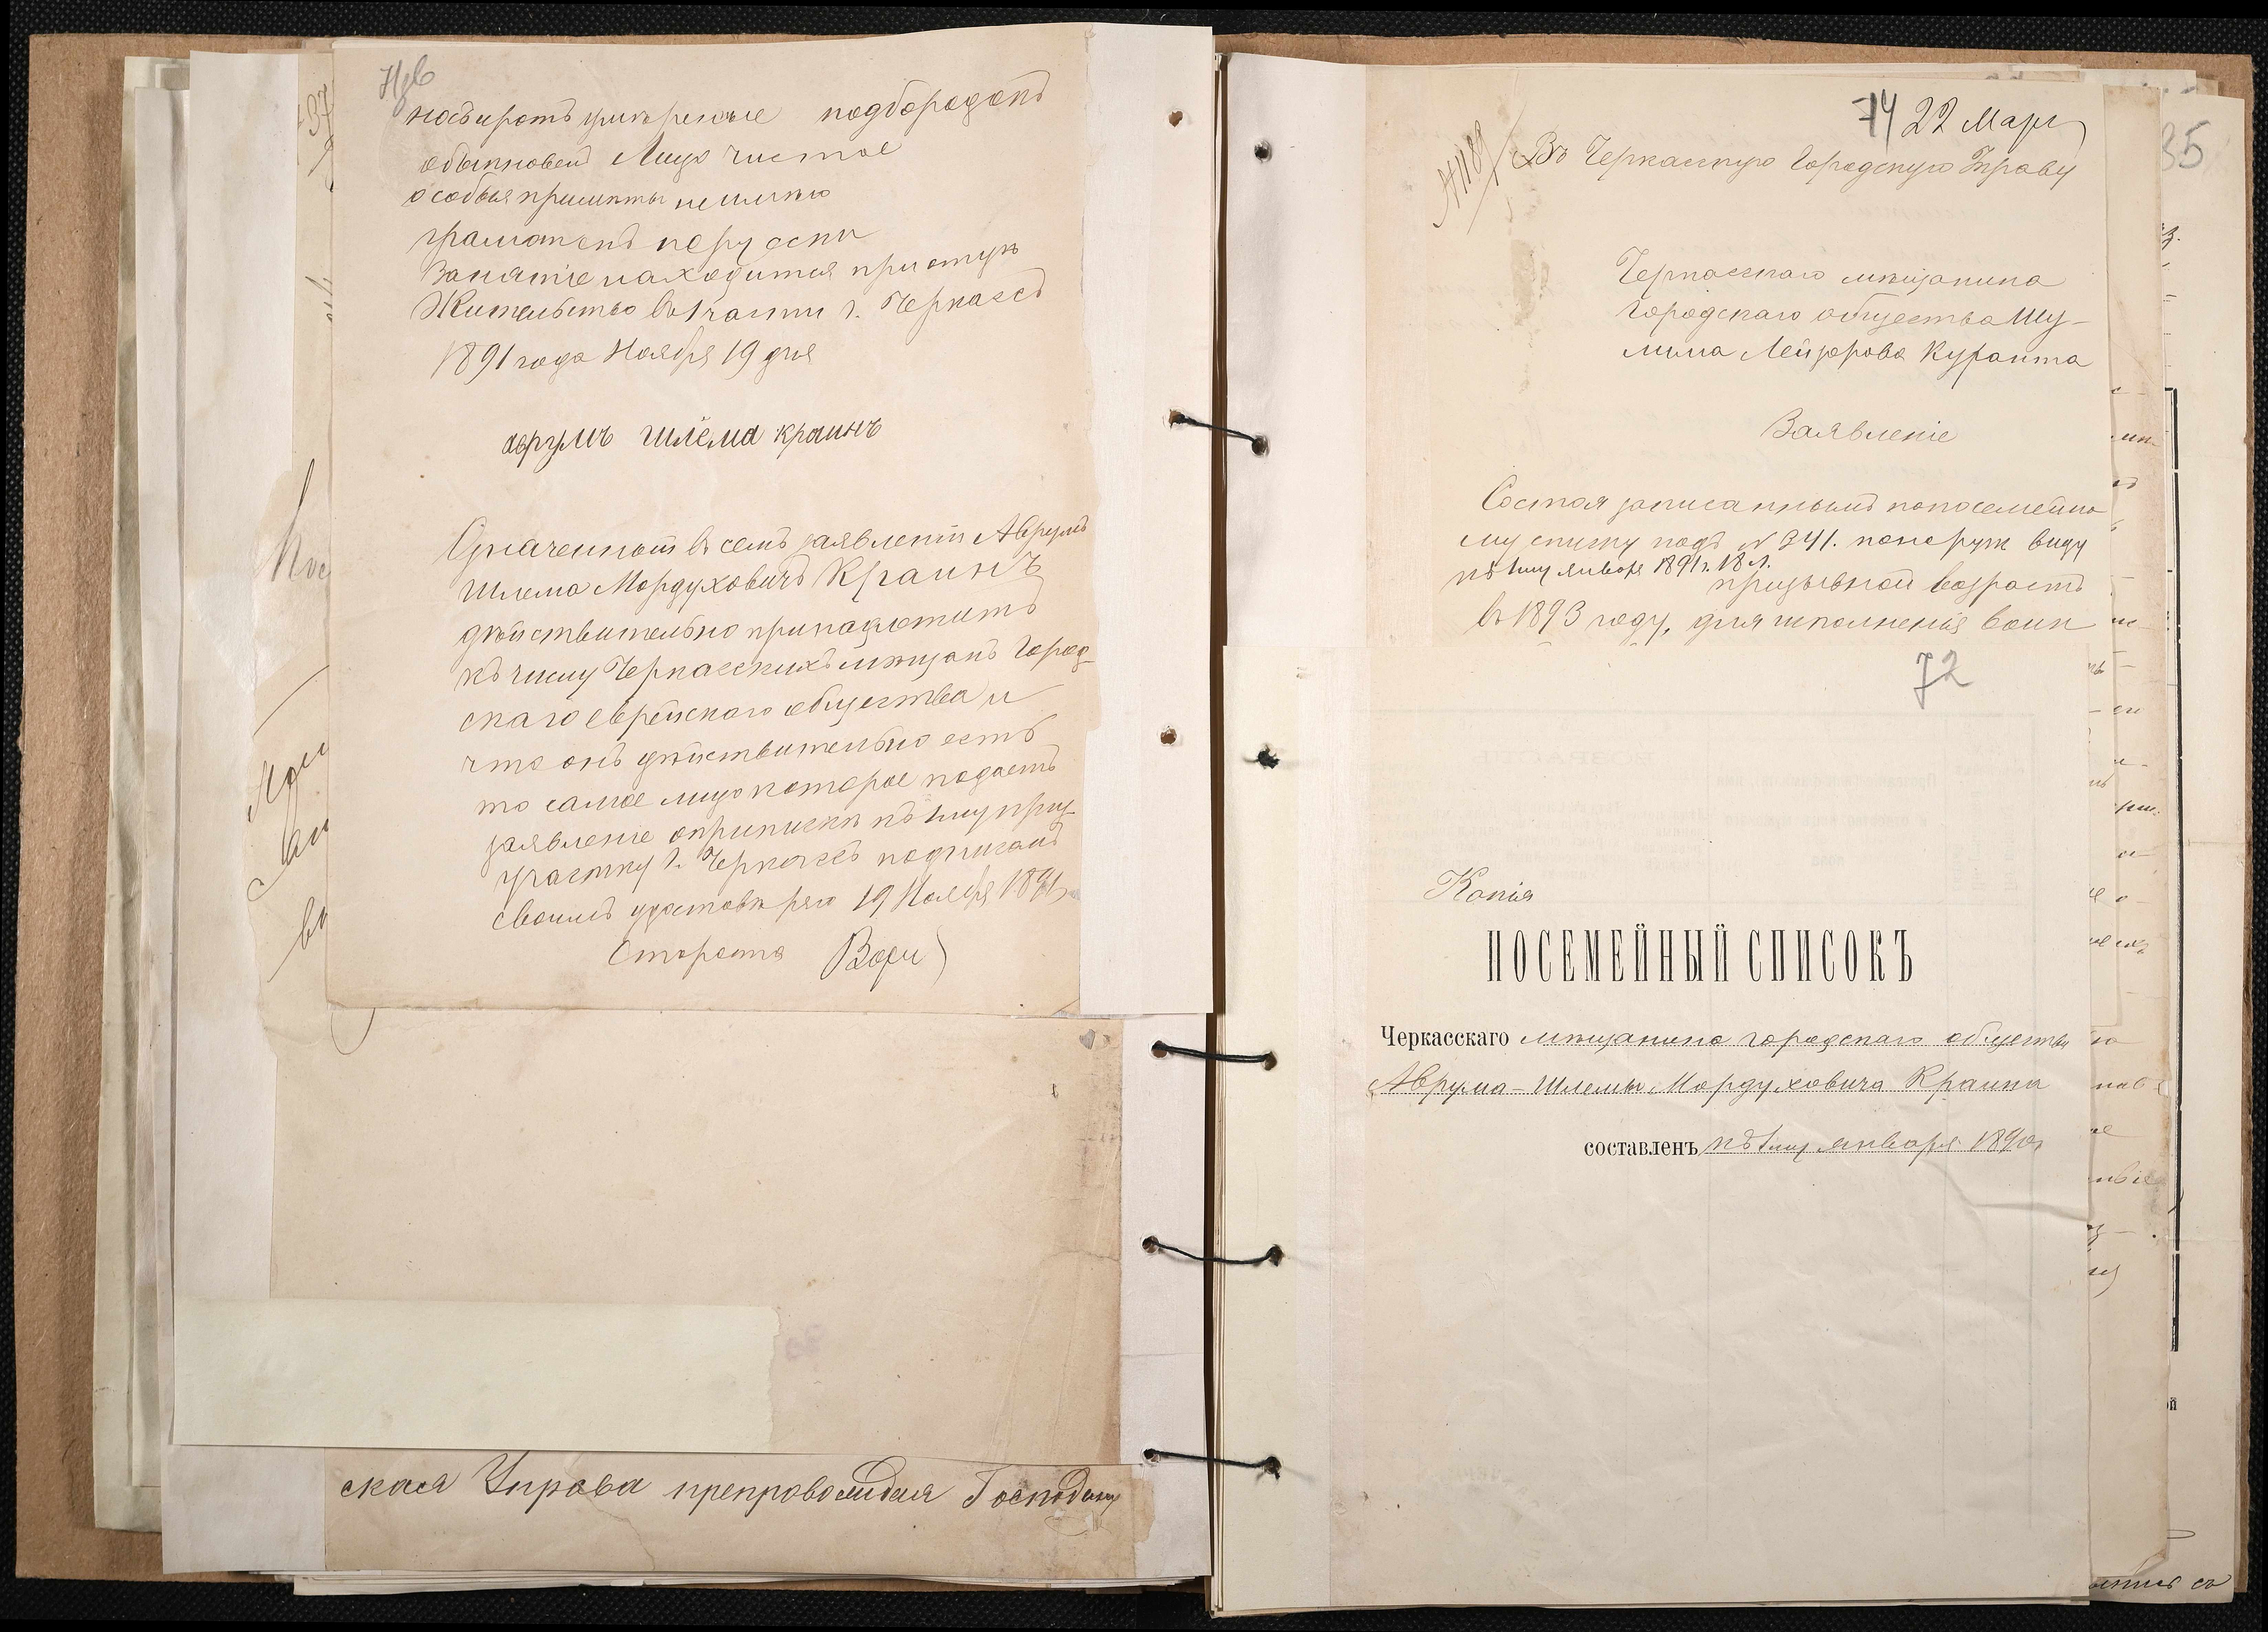 носъ и ротъ умѣренные подбородокъ
обыкновен Лицо чистое
особыя примѣты не имѣю
грамотенъ по русски
Занятіе находится при отцѣ
Жительство въ 1 части г. Черкассъ
1891 года Ноября 19 дня
аврумъ шлёма краинъ
Означенный въ семъ заявленіи Аврумъ
Шлема Мордуховичъ Краинъ
дѣйствительно принадлежитъ
къ числу Черкасскихъ мѣщанъ Город-
скаго еврейскаго общества и
что онъ дѣйствительно есть
то самое лицо которое подаетъ
заявленіе о припискѣ къ 1му приз.
участку г. Черкассъ подписомъ
своимъ удостовѣряю 19 Ноября 1891 г.
Староста
ская Управа препровождая Господину
74 22 Мар
№1189
Въ Черкасскую Городскую Управу
Черкасскаго мѣщанина
городскаго общества Шу-
лима Лейзерова Куранта
Заявленіе
Состоя записаннымъ по посемейно
му списку подъ №341. по наруж виду
къ 1му января 1891 г. 18 л.
призывной возрастъ
въ 1893 году, для исполненія воин
72
Копія
ПОСЕМЕЙНЫЙ СПИСОКЪ
Черкасскаго мѣщанина городскаго общества
Аврума-Шлемы Мордуховича Краина
составленъ къ 1му января 1890 г.
35